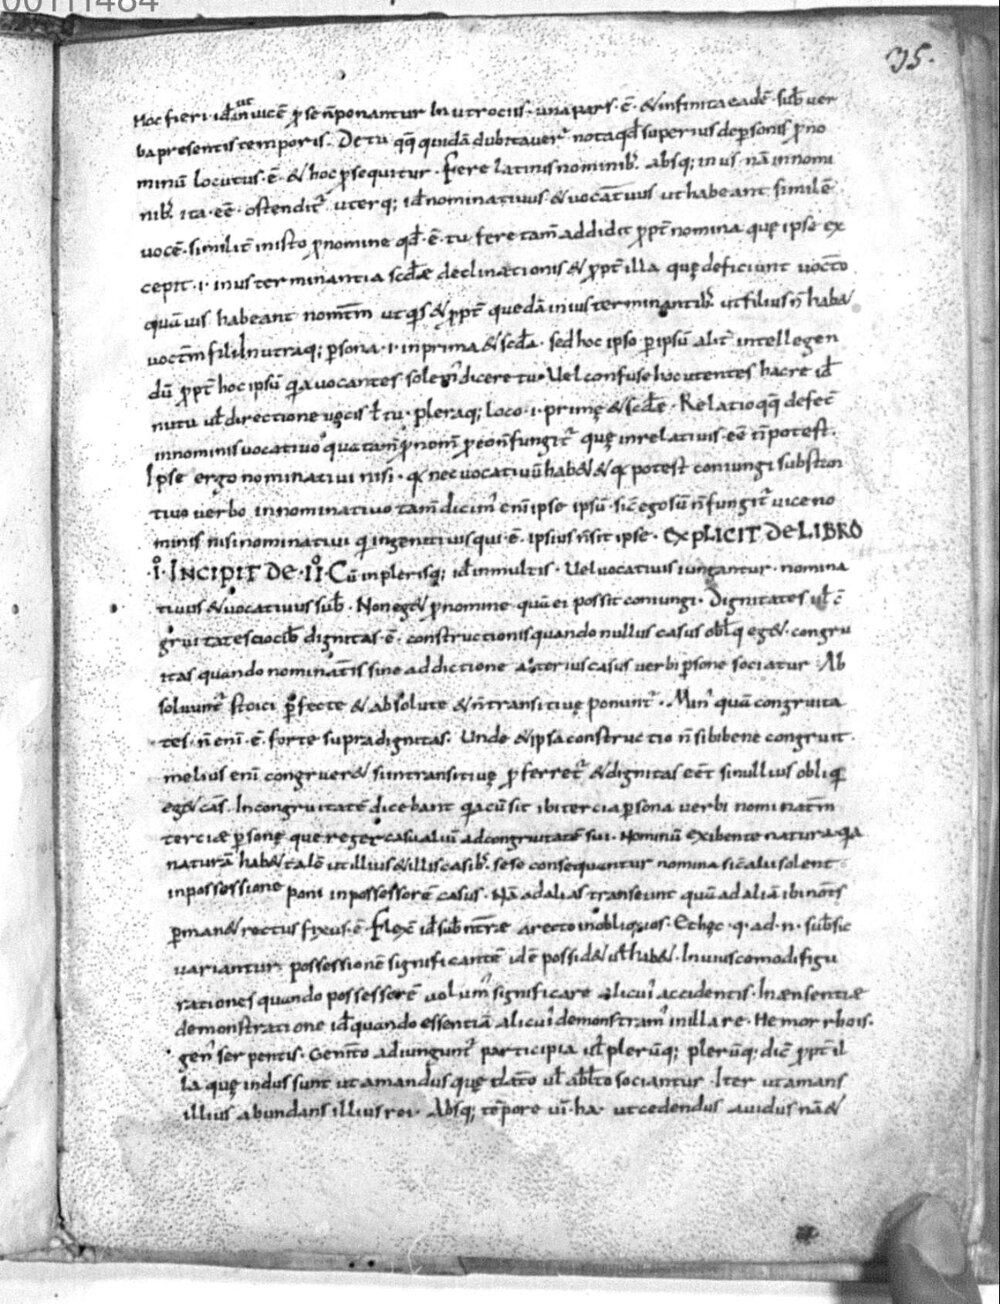 35.
Hoc fieri · id ut in uicē ꝓ se ñ ponantur In utrociis · una pars · ē · & infinita eadē · sub uer
ba presentis temporis · De tu qq̄ quidā dubitauer̄ · nota qđ superius de ꝑsonis ꝓno
minū locutus · ē · & hoc ꝓsequitur · Fere latinis nominib; absq; in us · nā in nomi
nib; ita · eē · ostendit̄ uterq; id nominatiuus & uocatiuus ut habeant similē
uocē · similit̄ in isto ꝓnomine qđ · ē · tu · fere tam̄ addidit ꝓpt̄ nomina quę ipse ex
cepit · i · in us terminantia scđæ declinationis & ꝓpt̄ illa quę deficiunt uoct̄o
quā uis habeant nomt̄m ut q̄s & ꝓpt̄ quedā in ius terminantib; ut filius ñ hab&
uoct̄m fili In utraq; ꝑsona · i · in prima & scđa · sed hoc ipso ꝑ ipsū alit̄ intellegen
dū ꝓpt̄ hoc ipsū q̄a uocantes solem̄ dicere tu · Vel confuse hoc utentes hac re id
nutu ul̄ directione uocis ł tu · pleraq; loco · i · primę & scđe · Relatio qq̄ defec̄
in nominis uocatiuo qua tam̄ ꝓnom̄ ñ fungit̄ quę in relatiuis · eē ñ potest ·
Ipse ergo nominatiui nisi · q̄ nec uocatiuū hab& & q̄ potest coniungi substan
tiuo uerbo in nominatiuo tam̄ dicim̄ enī ipse ipsū · sic̄ ego sū ñ fungit̄ uice no
minis nisi nominatiui q̄ in genitiuis qui · ē · ipsius ñ sit ipse · EXPLICIT DE LIBRO
· I · INCIPIT DE · II · Cū in plerisq; id in multis · Vel uocatiuis iungantur · nomina
tiuus & uocatiuus sub · Non eg& ꝓnomine quā ei possit coniungi · Dignitates ul̄ c̄
gruitates dignitas · ē · constructionis quando nullus casus obl̄q̄ eg& · congru
itas quando nominat̄is sine addictione alterius casus uerbi ꝑsone sociatur · Ab
soluunt̄ stoici ꝑfecte & absolute & ñ transitiuę ponunt̄ · Min̄ quā congruita
tes · ñ enī · ē · forte supra dignitas · Vnde & ipsa constructio ñ sibi bene congruit ·
melius enī congruer& si intransitiuę ꝓferret̄ & dignitas eēt si nullius obliq̄
eg& cās · Incongruitatē dicebant q̄a cū sit ibi tercia ꝑsona uerbi nominat̄m
terciæ ꝑsonę que reget casu aliū ad congruitatē sui · Nominū exibente natura q̄a
naturā hab& talē ut illius & illis casib; sese consequantur nomina sic̄ alii solent
in possessione poni in possessorē casus · Nā ad alias transeunt quā ad aliā ibi not̄s
ꝑman& rectus fixus · ē · Flex̄ id sub nt̄re a recto in obliquos · Et hęc · q · ad · n · sub sic
uariantur possessionē significante idē possid& ul̄ hab& · In unis comodi figu
rationes quando possessorē uolum̄ significare alicui̓ accidentis · In æn sentiæ
demonstratione id quando essentiā alicui̓ demonstram̄ in illa re · Hemorrhois ·
gen̄ serpentis · Genit̄o adiungunt̄ participia ul̄ plerūq; plerūq; dic̄ ꝓpt̄ il
la quę in dus sunt ut amandus quę dat̄o ul̄ abl̄to sociantur · Iter ut amans
illius abundans illius rei · Absq; tēpore ui · ha · ut cedendus auidus nā &